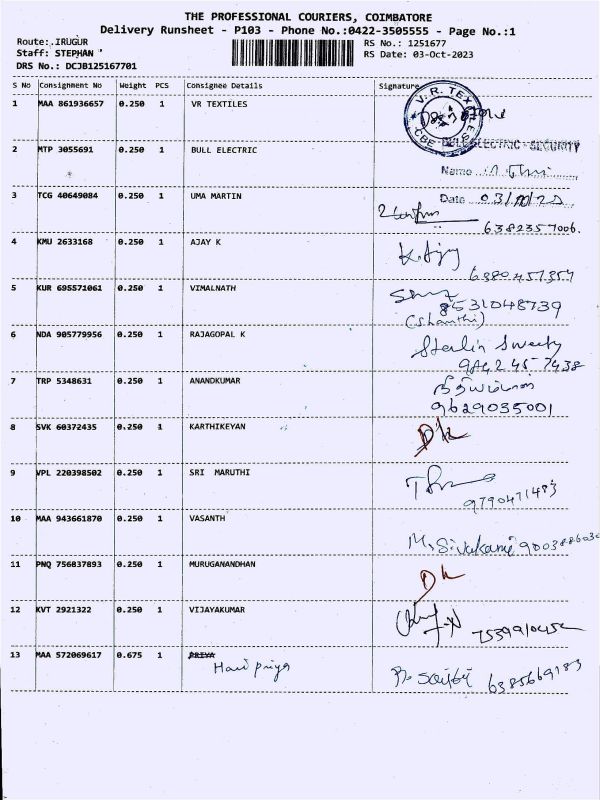 THE PROFESSIONAL COURIERS, COIMBATORE
Delivery Runsheet - P103 - Phone No.:0422-3505555 - Page No.:1
Route: IRUGUR
RS No.: 1251677
Staff: STEPHAN
RS Date: 03-Oct-2023
DRS No.: DCJB125167701
S No Consignment No Weight PCS Consignee Details Signature
1 MAA 861936657 0.250 1 VR TEXTILES
V. R. TEX
CBE
2 MTP 3055691 0.250 1 BULL ELECTRIC BULL ELECTRIC - SECURITY
Name
3 TCG 40649084 0.250 1 UMA MARTIN Date 03/10/23
6382357006.
4 KMU 2633168 0.250 1 AJAY K K. Ajay
6380457357
5 KUR 695571061 0.250 1 VIMALNATH
8531048739
(Shanthi)
6 NDA 905779956 0.250 1 RAJAGOPAL K Sterlin Sweety
9442457438
7 TRP 5348631 0.250 1 ANANDKUMAR
9629035001
8 SVK 60372435 0.250 1 KARTHIKEYAN
9 VPL 220398502 0.250 1 SRI MARUTHI
9790471483
10 MAA 943661870 0.250 1 VASANTH
M. Sivakami
11 PNQ 756837893 0.250 1 MURUGANANDHAN
12 KVT 2921322 0.250 1 VIJAYAKUMAR
13 MAA 572069617 0.675 1 PRIYA
Haripriya
6385669183